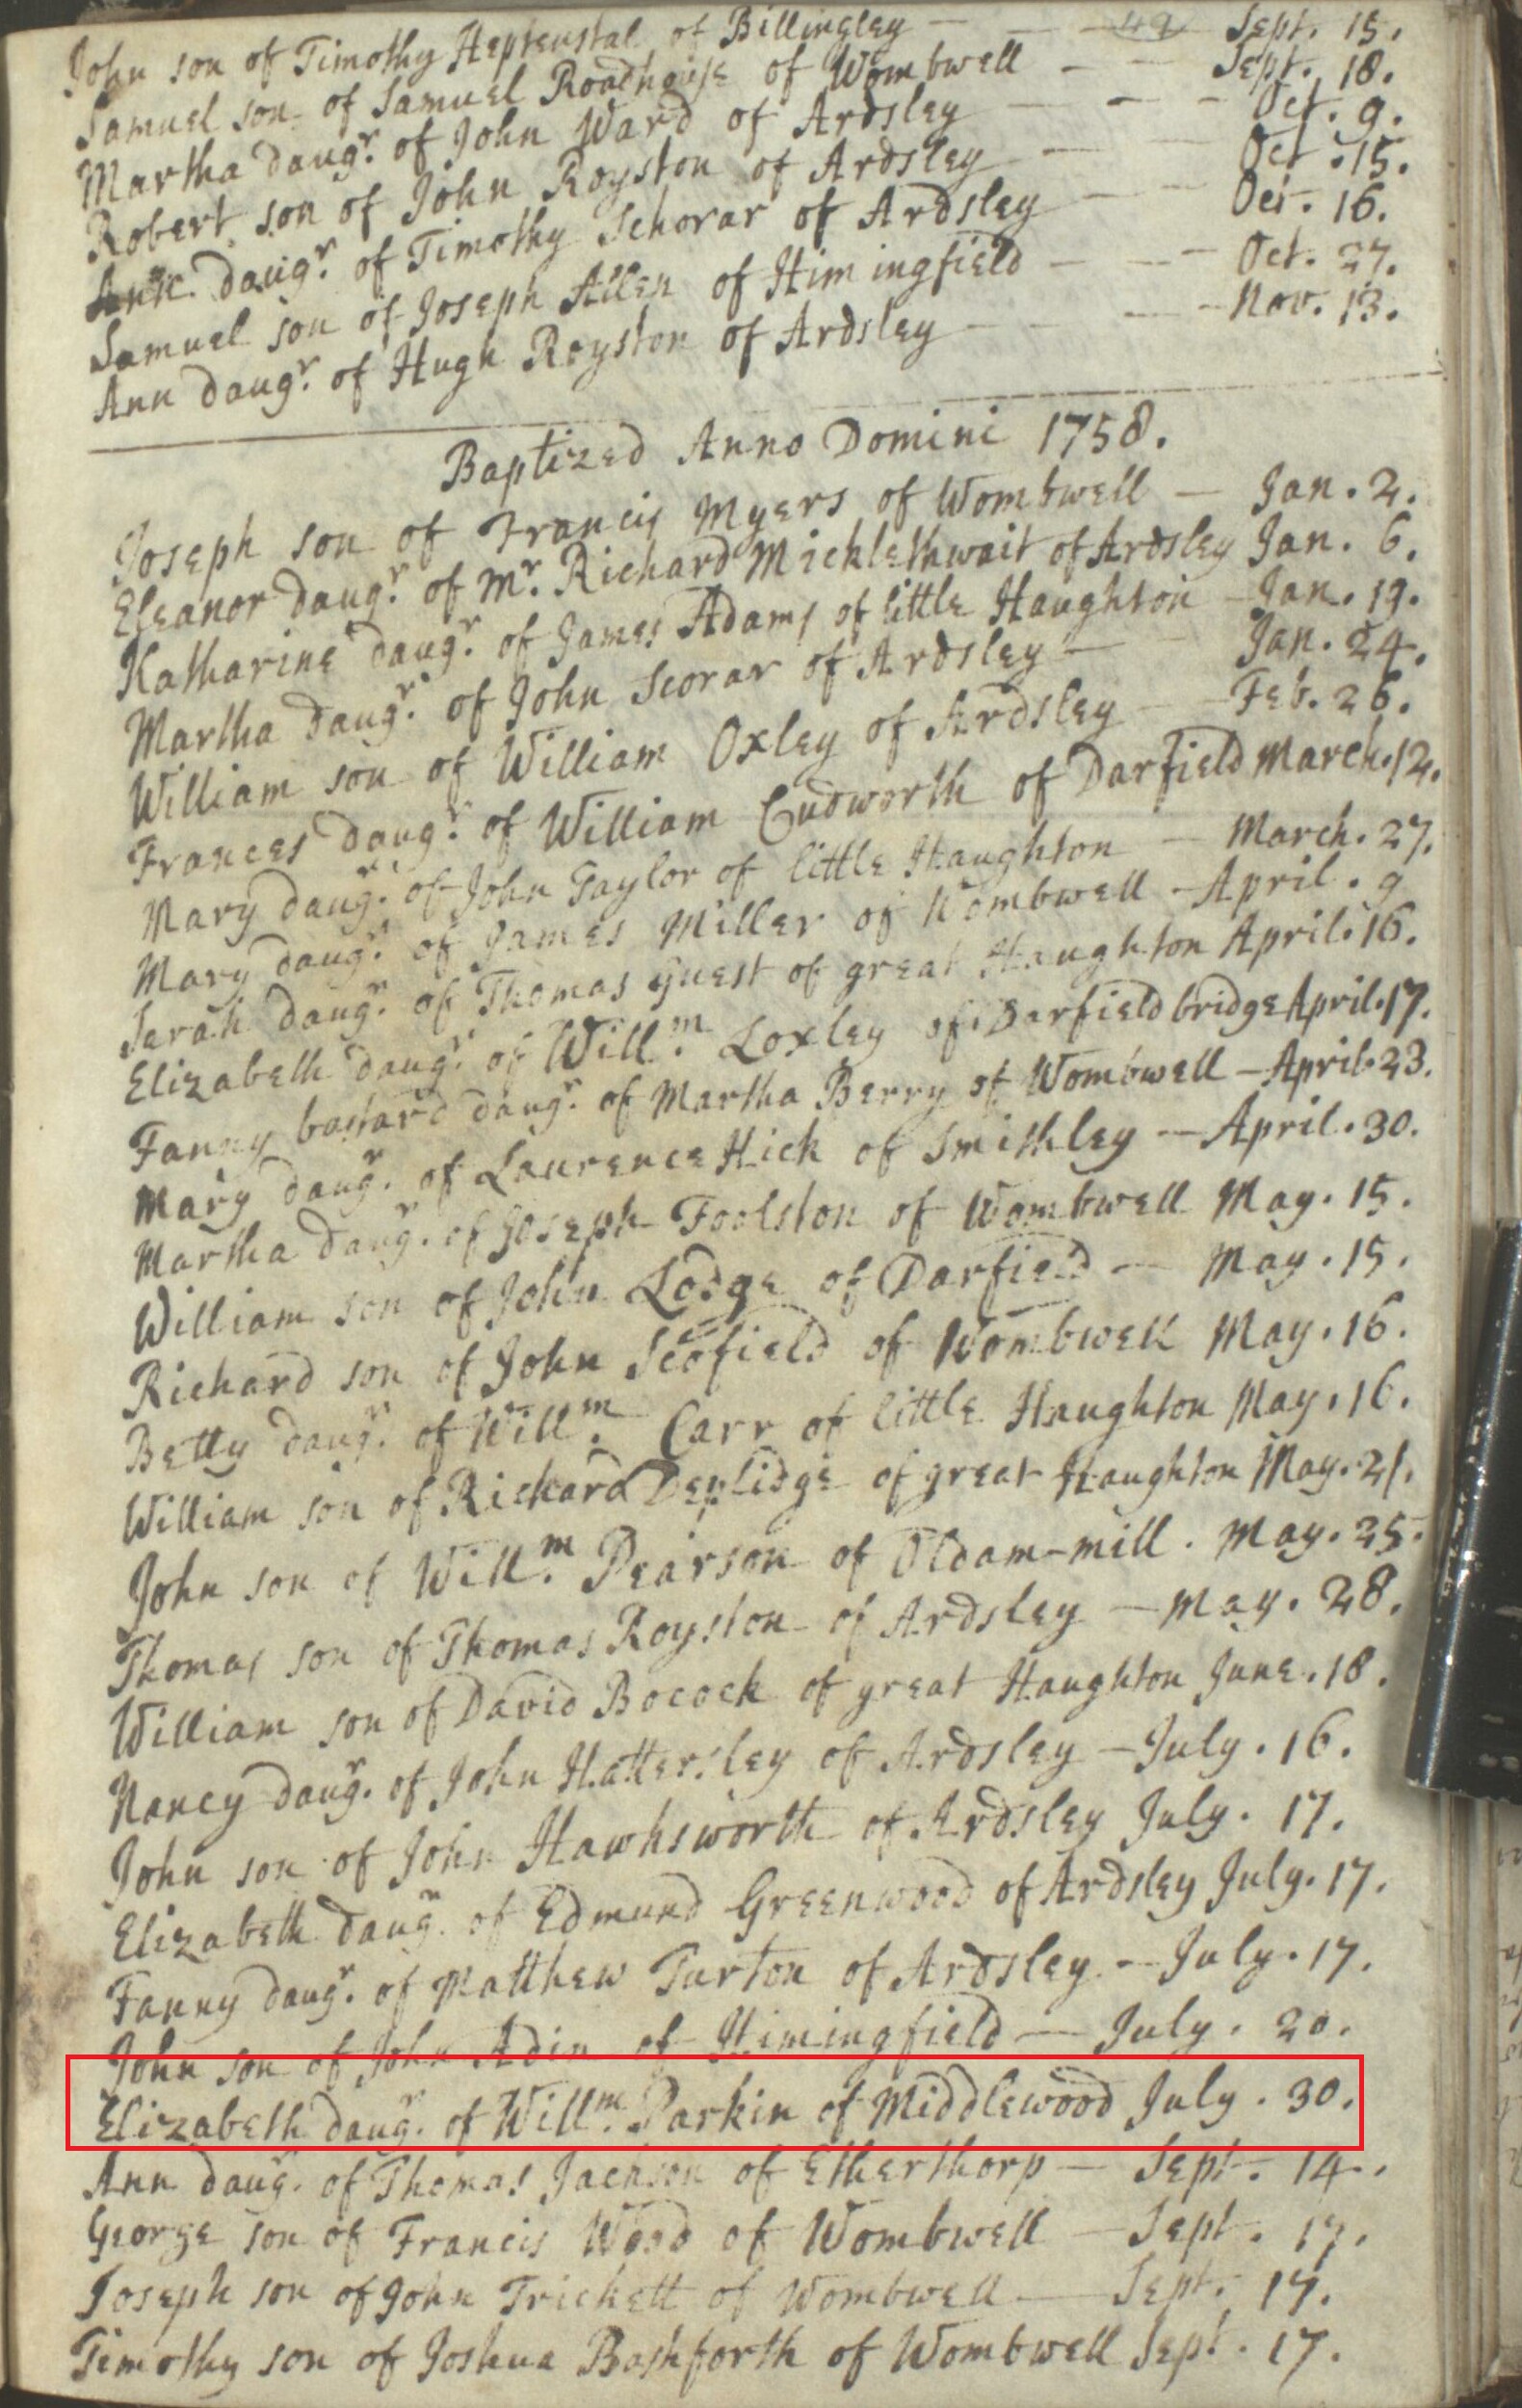 John son of Timothy Heptenstal of Billingley — — — 49 Sept. 15.
Samuel son of Samuel Roadhouse of Wombwell — — Sept. 18.
Martha daugr. of John Ward of Ardsley — — — Oct. 9.
Robert son of John Royston of Ardsley — — Oct. 15.
Ann daugr. of Timothy Schorar of Ardsley — — Oct. 16.
Samuel son of Joseph Allen of Himingfield — — — Oct. 27.
Ann daugr. of Hugh Royston of Ardsley — — — Nov. 13.
Baptized Anno Domini 1758.
Joseph son of Francis Myers of Wombwell — Jan. 2.
Eleanor daugr. of Mr. Richard Micklethwait of Ardsley Jan. 6.
Katharine daugr. of James Adams of little Haughton — Jan. 19.
Martha daugr. of John Scorar of Ardsley — — Jan. 24.
William son of William Oxley of Ardsley — — Feb. 26.
Frances daugr. of William Cudworth of Darfield March. 12.
Mary daugr. of John Taylor of little Haughton — March. 27.
Mary daugr. of James Miller of Wombwell — April. 9
Sarah daugr. of Thomas Guest of great Haughton April. 16.
Elizabeth daugr. of Willm. Loxley of Darfield bridge April. 17.
Fanny bastard daugr. of Martha Berry of Wombwell — April. 23.
Mary daugr. of Laurence Hick of Smithley — April. 30.
Martha daugr. of Joseph Foolston of Wombwell May. 15.
William son of John Lodge of Darfield — May. 15.
Richard son of John Scofield of Wombwell May. 16.
Betty daugr. of Willm. Carr of little Haughton May. 16.
William son of Richard of great Haughton May. 21.
John son of Willm. Pearson of Oldam-mill. May. 25.
Thomas son of Thomas Royston of Ardsley — May. 28.
William son of David Bocock of great Haughton June. 18.
Nancy daugr. of John Hattersley of Ardsley — July. 16.
John son of John Hawksworth of Ardsley July. 17.
Elizabeth daugr. of Edmund Greenwood of Ardsley July. 17.
Fanny daugr. of Matthew Turton of Ardsley — July. 17.
John son of John Adin of Himingfield — July. 20.
Elizabeth daugr. of Willm. Parkin of Middlewood July. 30.
Ann daugr. of Thomas Jackson of Etherthorp — Sept. 14.
George son of Francis Wood of Wombwell — Sept. 17.
Joseph son of John Trickett of Wombwell — Sept. 17.
Timothy son of Joshua Bashforth of Wombwell Sept. 17.